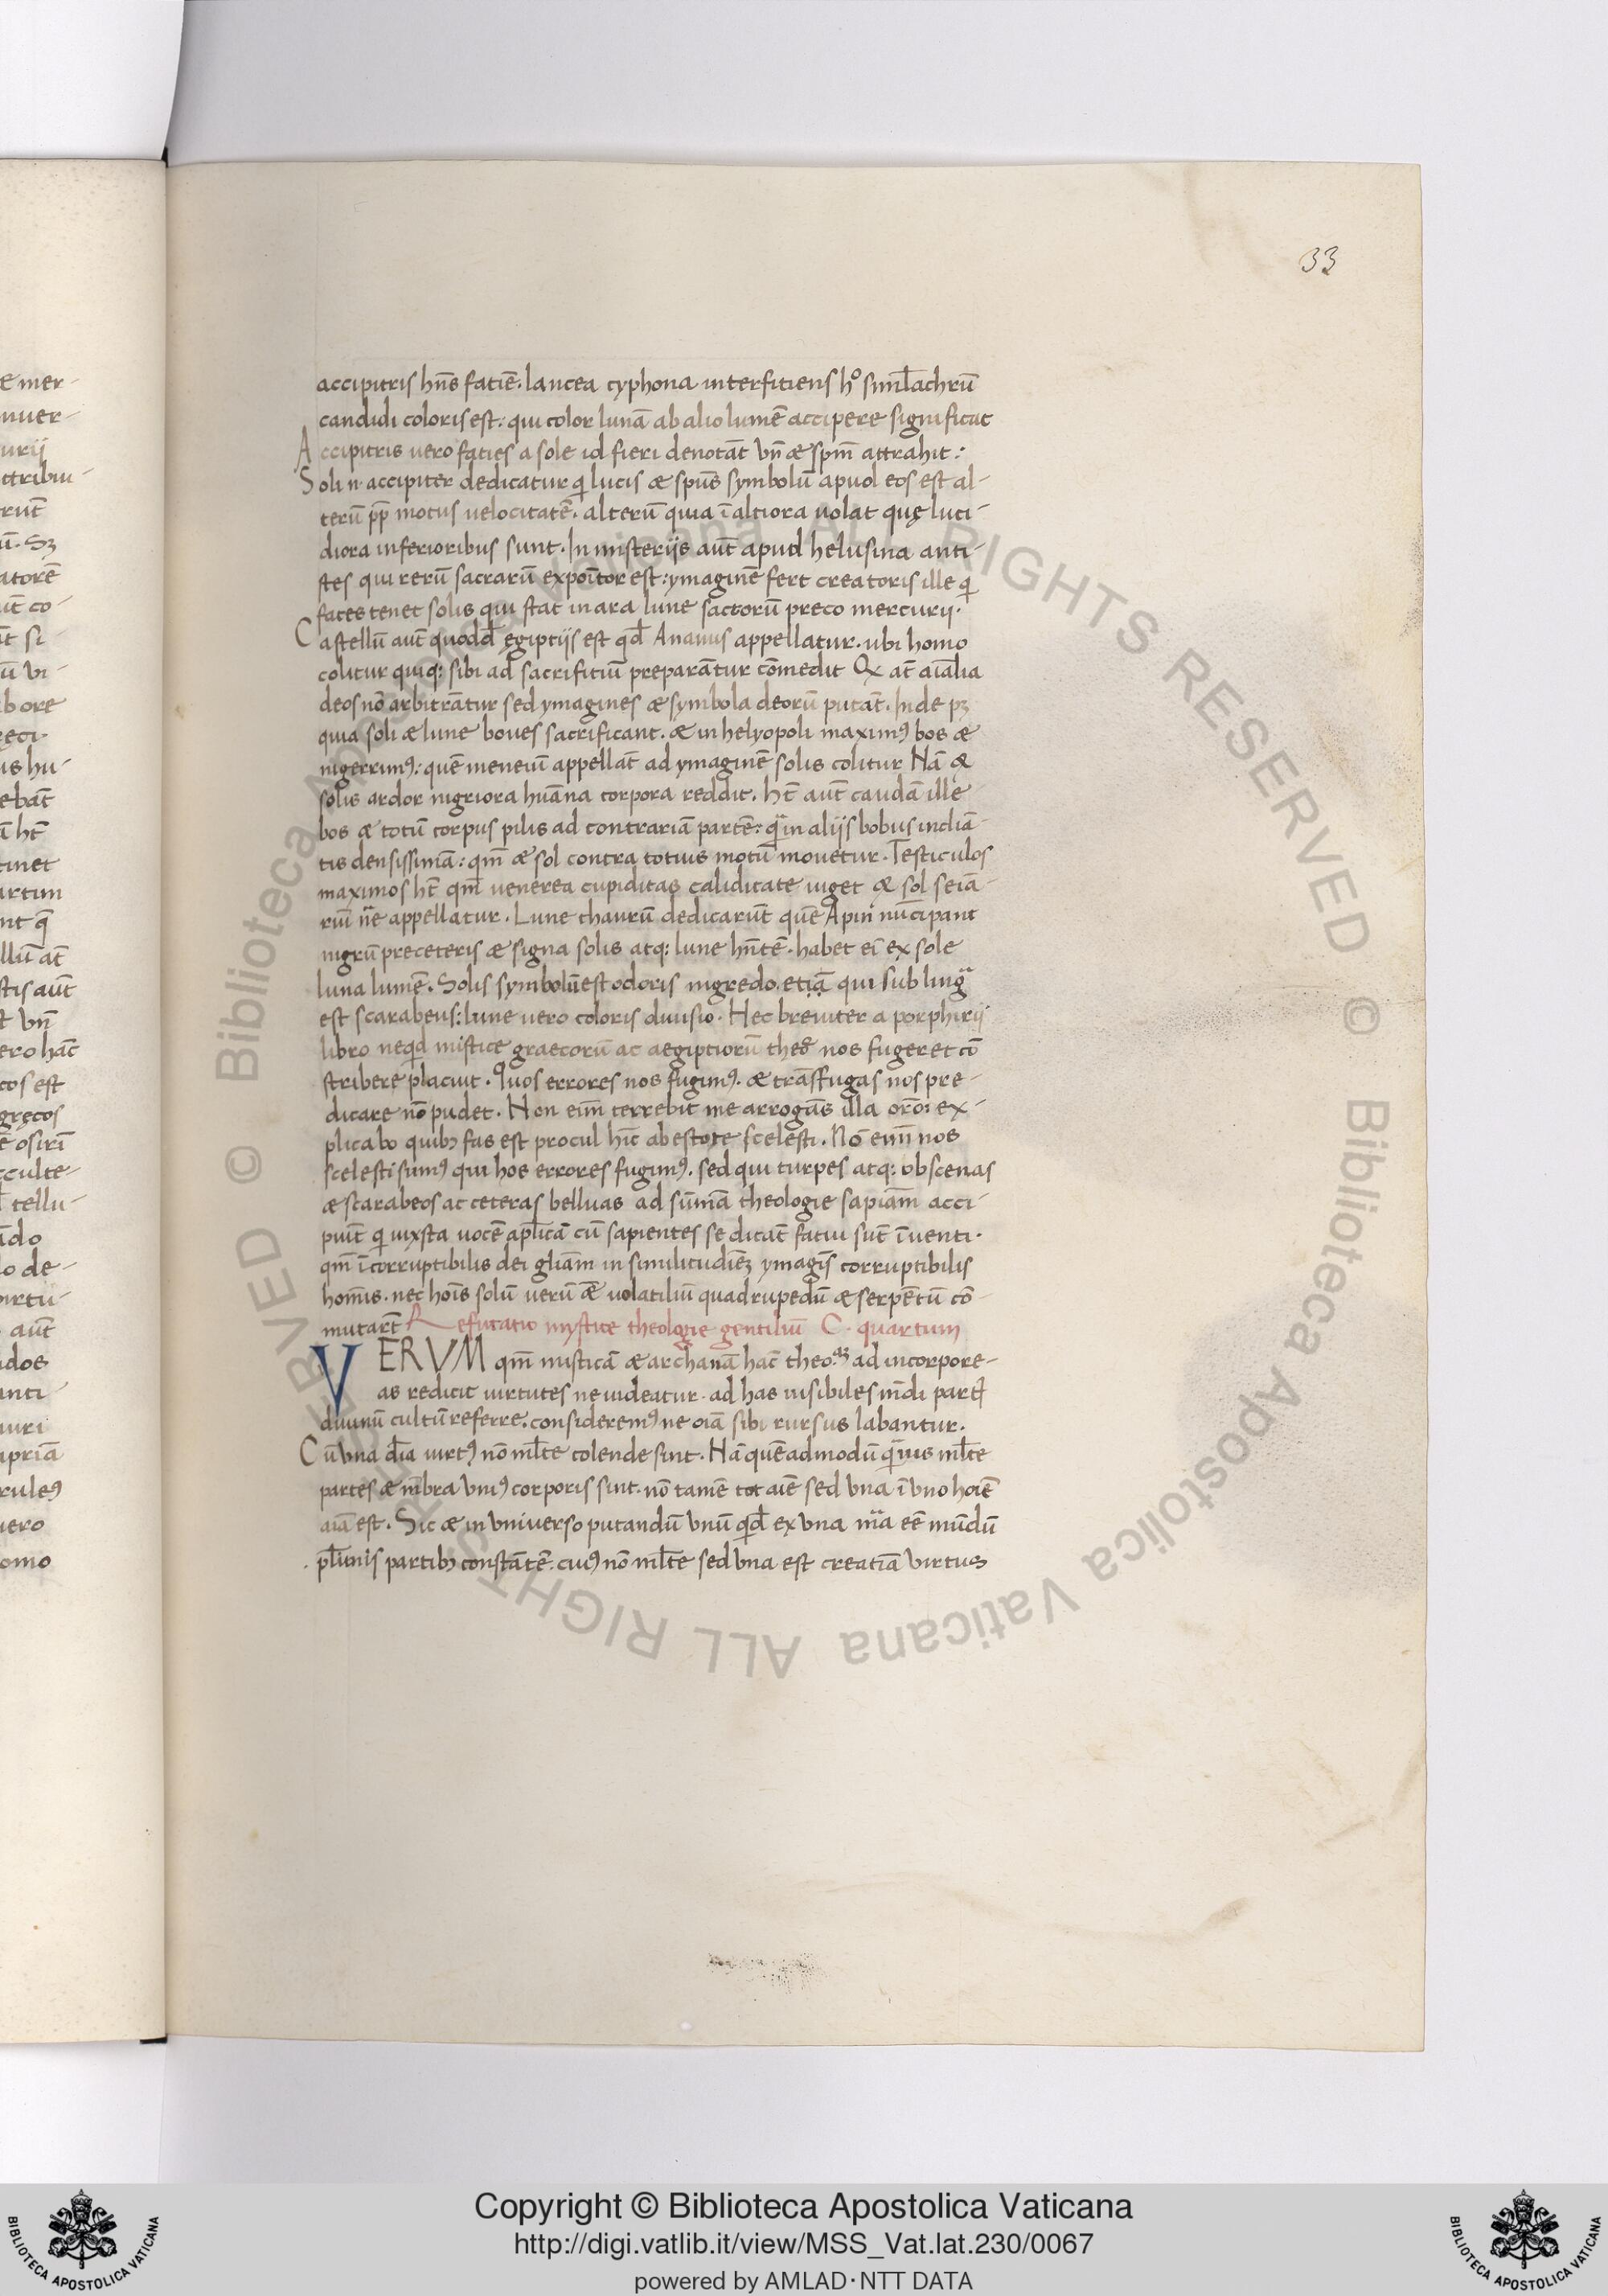 33
accipitris hn̄s fatiē. lancea typhona interfitiens h° siml̄achrū
candidi coloris est: qui color lunā ab alio lumē accipere significat
Accipitris uero faties a sole id fieri denotāt vn̄ & spm̄ attrahit:
Soli n̄ accipiter dedicatur qi lucis & spūs symbolū apud eos est al-
terū pp̄ motus uelocitatē. alterū quia ī altiora uolat quę luci-
diora inferioribus sunt. In misterijs aut̄ apud helusina anti-
stes qui rerū sacrarū expoītor est: ymaginē fert creatoris ille qi
faces tenet solis qui stat in ara lune sactorū preco mercurij.
Castellū aut̄ quodd̄ ęgiptijs est qd̄ Anauus appellatur. ubi homo
colitur quiq: sibi ad sacrifitiū preparāntur cōmedit Qx at̄ aīalia
deos nō arbitrāntur sed ymagines & symbola deorū putāt. Inde pꝫ
quia soli & lune boues sacrificant. & in helyopoli maximꝰ bos &
nigerrimꝰ: quē meneiū appellāt ad ymaginē solis colitur Nā &
solis ardor nigriora huāna corpora reddit. ht̄ aut̄ caudā ille
bos & totū corpus pilis ad contrariā partē: q̄ in alijs bobus inclīa-
tis densissimā: qm̄ & sol contra totius motū mouetur. Testiculos
maximos ht̄ qm̄ uenerea cupiditas caliditate uiget & sol seīa-
riū nr̄e appellatur. Lune thaurū dedicarūt quē Apin nūcipant
nigrū preceteris & signa solis atq: lune hn̄tē. habet eī ex sole
luna lumē. Solis symbolū est odoris nigredo. etiā qui sub lingᵃ
est scarabeus: lune uero coloris diuisio. Hec breuiter a porphirij
libro neqd mistice graecorū ac aegiptiorū theo̅ꝛ nos fugeret cō
scribere placuit. Quos errores nos fugimꝰ. & trāsffugas nos pre-
dicare nō pudet. Non eīm terrebit me arrogās illa orō: ex-
plicabo quibꝫ fas est procul hīc abestote scelesti. Nō enī nos
scelesti sumꝰ qui hos errores fugimꝰ. sed qui turpes atq: obscenas
& scarabeos ac ceteras belluas ad sūmā theologie sapiām acci-
piūt qi iuxsta uocē apl̄icā cū sapientes se dicāt fatui sūt īuenti.
qm̄ īcorruptibilis dei glīam in similitudīeꝫ ymagīs corruptibilis
homīs. nec hoīs solū uerū & uolatiliū quadrupedū & serpētū cō-
mutarēt Refutatio mystice theologie gentiliū C. quartum
VERVM qm̄ misticā & archanā hāc theo.ᵃꝫ ad incorpore-
as redicit uirtutes ne uideatur. ad has uisibiles mūdi partꝭ
diuinū cultū referre. consideremꝰ ne oīa sibi rursus labantur.
Cū vna dīa uirtꝰ nō ml̄te colende sint. Nā quēadmodū q̄uis ml̄te
partes & mb̄ra vniꝰ corporis sint. nō tamē tot aīe sed vna ī vno hoīe
aīa est. Sic & in vniuerso putandū vnū qd̄ ex vna mᵃ eē mūdū
pl̄imis partibꝫ constātē. cuiꝰ nō ml̄te sed vna est creatīa virtus
Copyright © Biblioteca Apostolica Vaticana
http://digi.vatlib.it/view/MSS_Vat.lat.230/0067
powered by AMLAD·NTT DATA